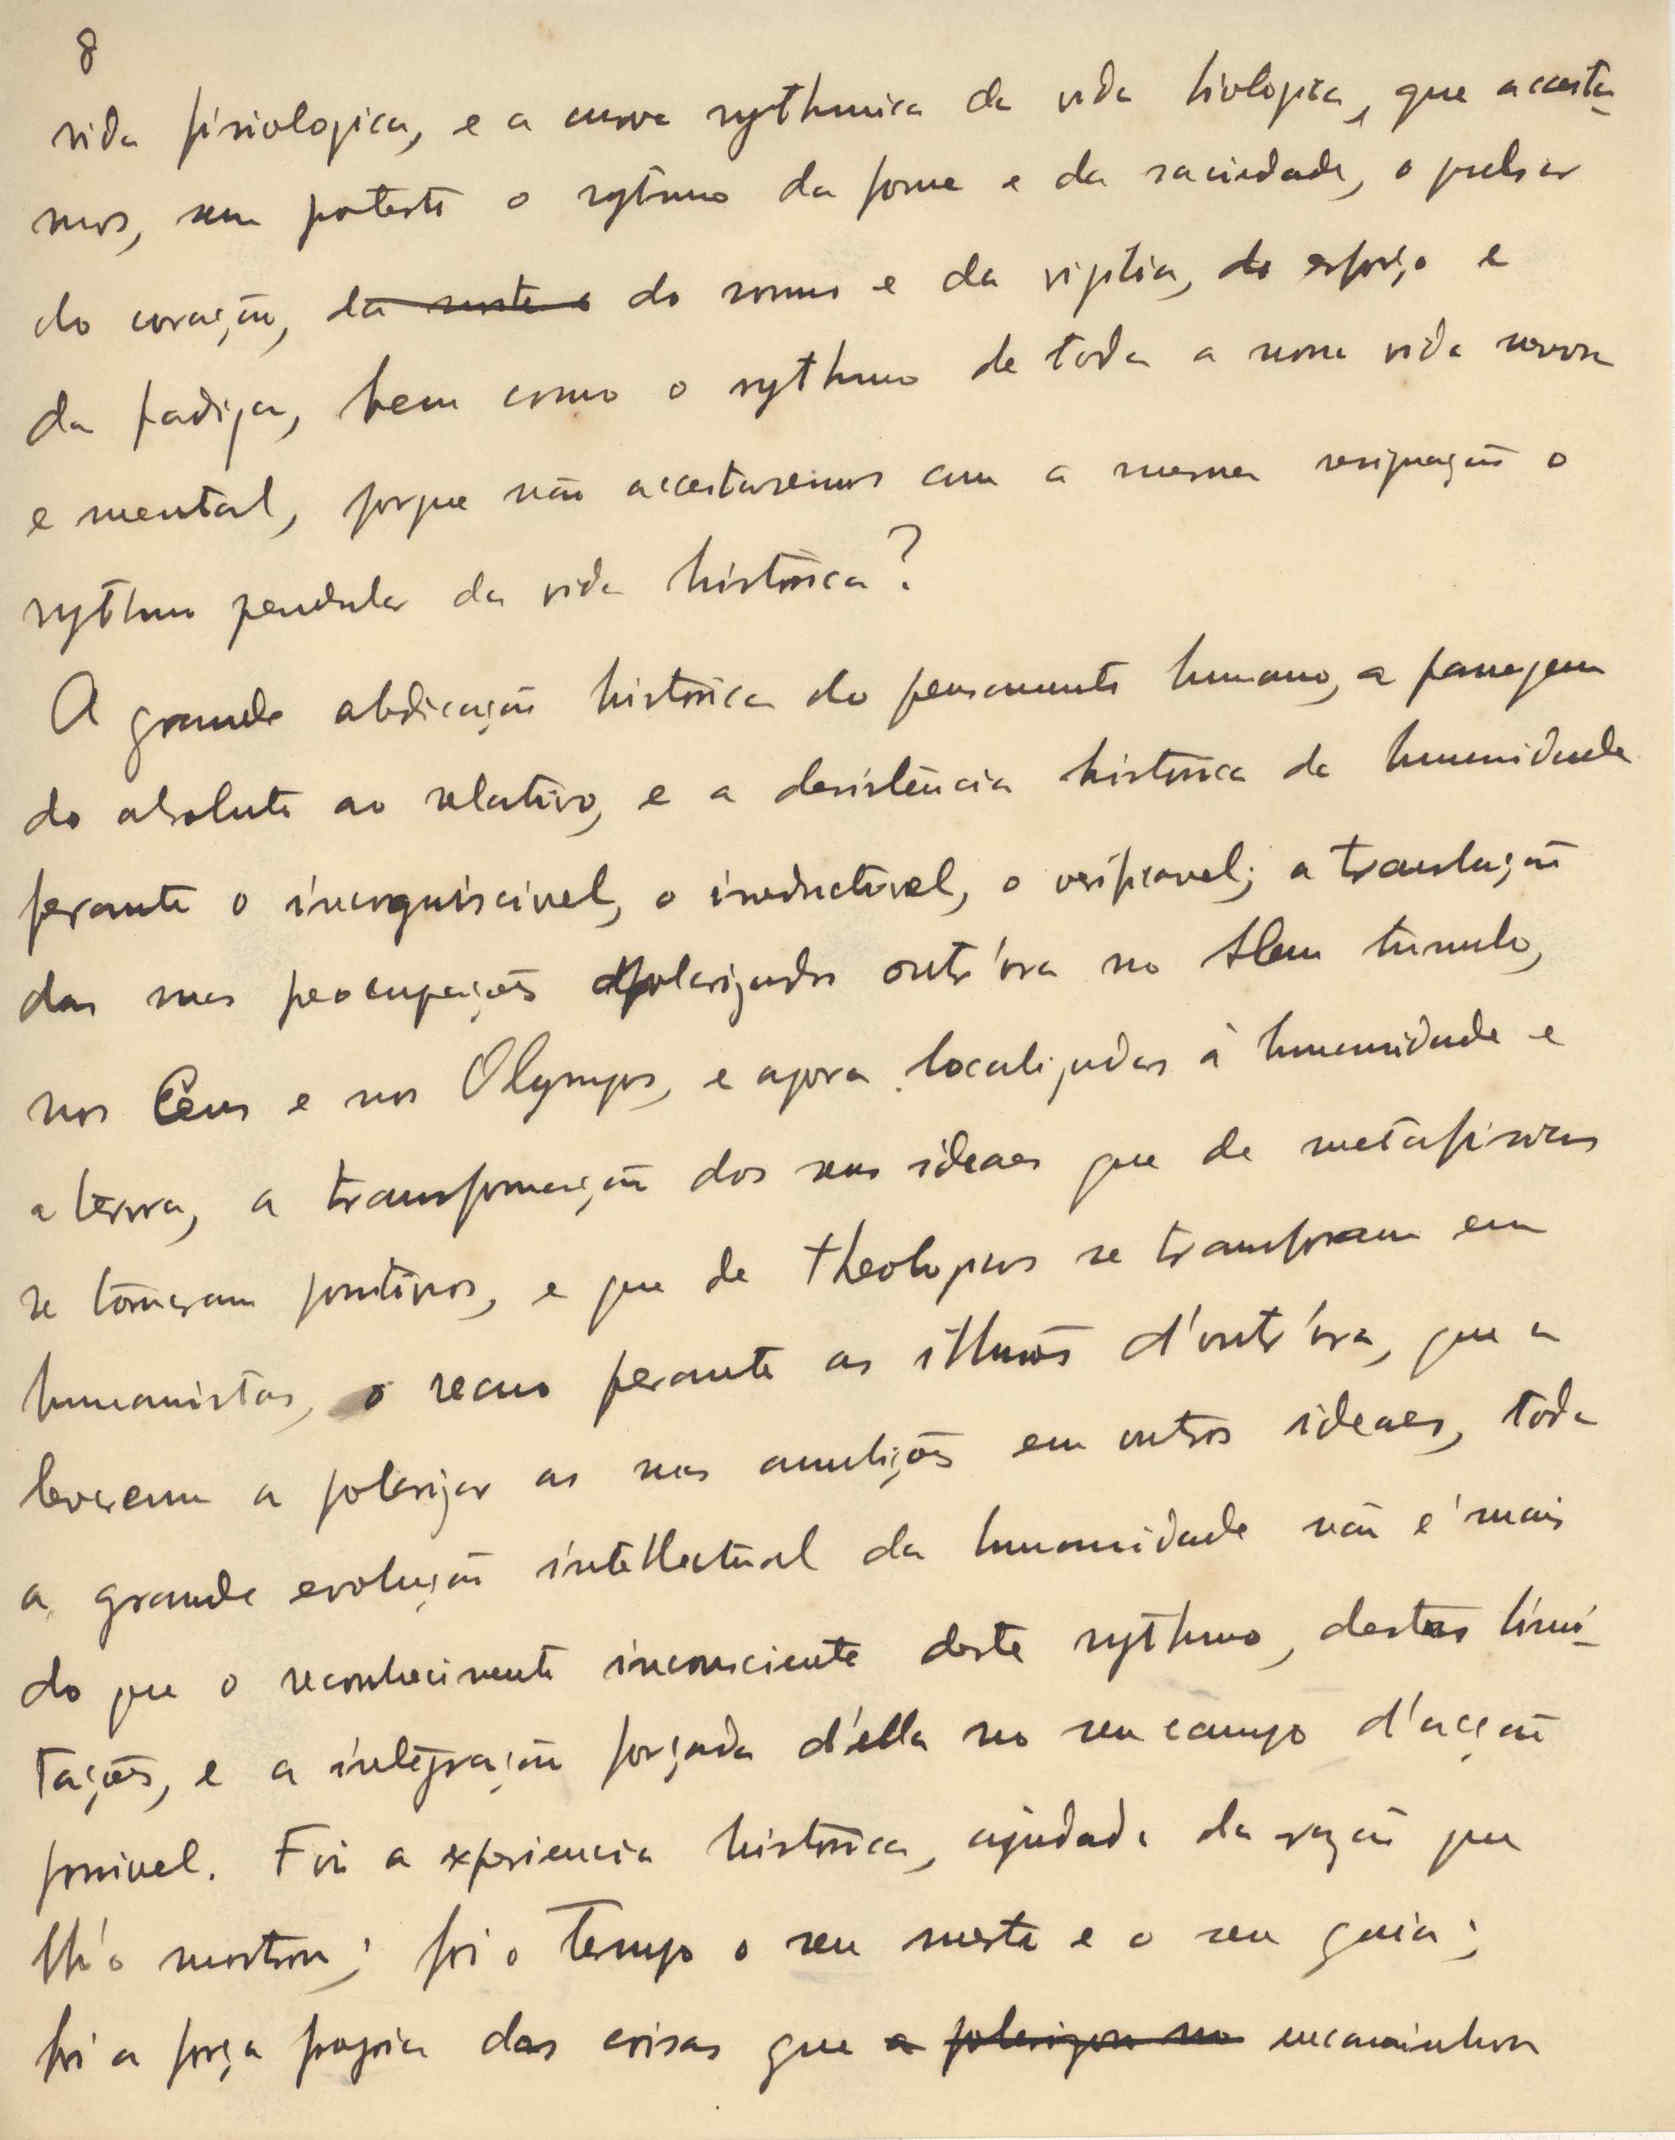 8
vida fisiologica, e a curva rythmica da vida biologica, que acceita-
mos, sem protesto o rytmo da fome e da saciedade, o pulsar
do coração, da morte e do somno e da vigilia, do esforço e
da fadiga, bem como o rythmo de toda a nossa vida nervosa
e mental, porque não acceitaremos com a mesma resignação o
rythmo pendular da vida histórica?
A grande abdicação histórica do pensamento humano, a passagem
do absoluto ao relativo, e a desistência histórica da humanidade
perante o incognoscivel, o inductivel, o verificavel; a translação
das suas preocupações polarizadas outr'ora no Alem tumulo,
nos Céus e nos Olympos, e agora localizadas á humanidade e
a térrra, a transformação dos seus ideaes que de metafisicos
se tornaram positivos, e que de theologicos se transforam em
humanistas, o recuo perante as illusões d'outr'ora, que a
levaram a polarizar as suas ambições em outros ideaes, toda
a grande evolução intellectual da humanidade não é mais
do que o reconhecimento inconsciente deste rythmo, destas limi-
tações, e a integração forçada d'ella no seu campo d'acção
possivel. Foi a experiencia histórica, ajudada da razão que
lh'o mostrou; foi o Tempo o seu mestre e o seu guia;
foi a força propria das coisas que a polarizou no encaminhou